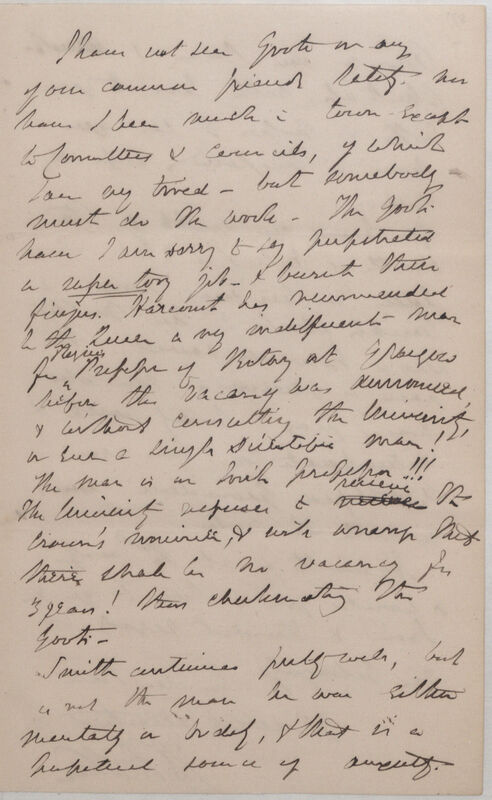 I have not seen Grote or any
of our common friends lately. nor
have I been much in town except
to Committees & Councils, of which
I am very tired – but somebody
must do the work – The Govt.
have I am sorry to say perpetrated
a super tory job – & burnt their
fingers. Harcourt has recommended
to the Queen a very indifferent man
for Regius Professor of Botany at Glasgow
before the vacancy was announced,
& without consulting the University,
or even a single Scientific man!
The man is an Irish professor!!!
The University refuses to receive the
Crown's nominee, & will arrange that
there shall be no vacancy for
3 years! thus checkmating the
Govt. –
Smith continues pretty well, but
is not the man he was either
mentally or bodily, & that is a
perpetual source of anxiety.